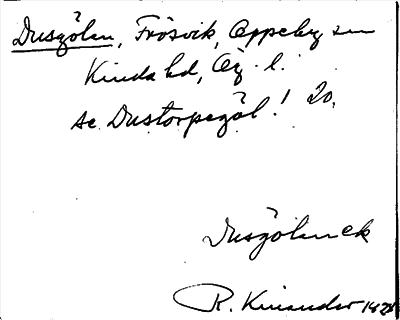 Dusgölen, Frösvik, Oppeby sn
Kinda hd, Ög. l.
se Dustorpegöl! 20.
Dusgölen ek
R. Kinander 1928